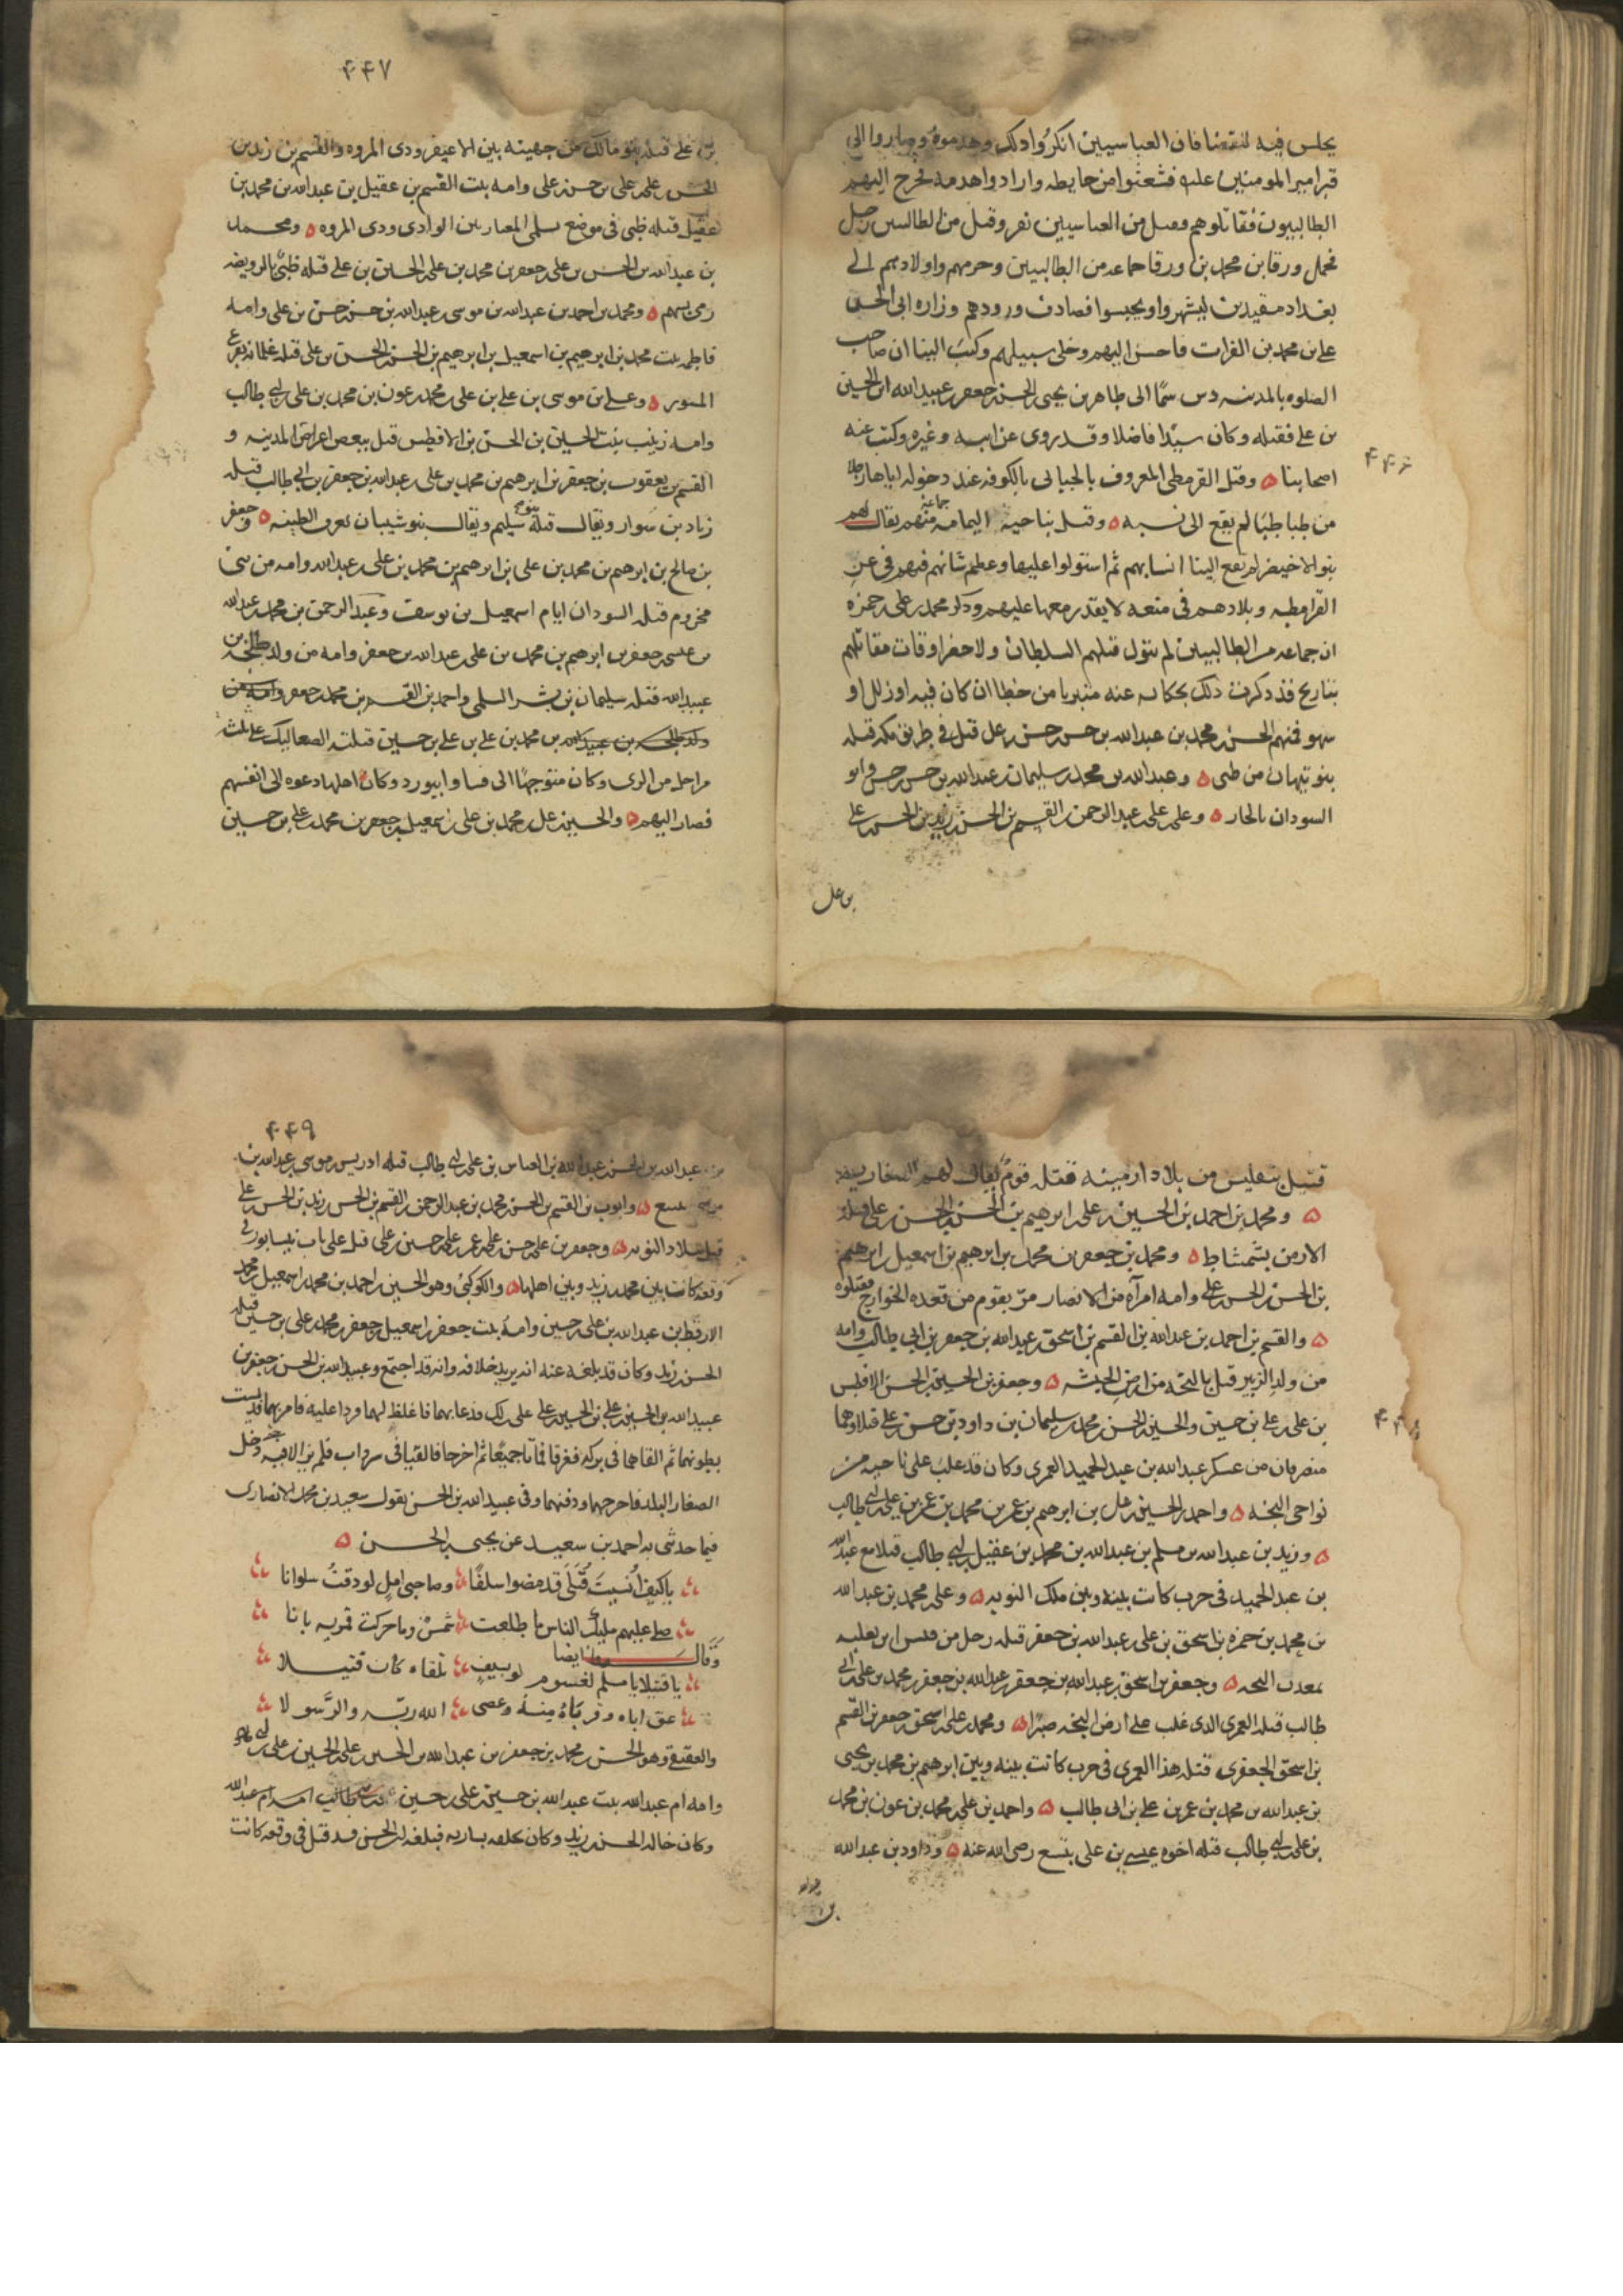 ۴۴۶
يجلس فيه للقضا فان العباسيين انكروا ذلك وهدموه وصاروا الى
قبر امير المومنين عليه فشعثوا من حايطه وارادوا هدمه فخرج اليهم
الطالبيون فقاتلوهم وقتل من العباسيين نفر وقتل من الطالبيين رجل
فحمل ورقا بن محمد بن ورقا جماعه من الطالبيين وحرمهم واولادهم الى
بغداد مقيدين ليشهروا ويحبسوا فصادف ورودهم وزاره ابى الحسن
على بن محمد بن الفرات فاحسن اليهم وخلى سبيلهم وكتب الينا ان صاحب
الصلوه بالمدينه دس سمًا الى طاهر بن يحيى بن الحسن بن جعفر بن عبيدالله ابن الحسين
بن على فقتله وكان سيدًا فاضلا وقد روى عن ابيه وغيره وكتب عنه
اصحابنا ه وقتل القرمطى المعروف بالجبالى بالكوفه عند دخوله اياها رجلا
من طباطبا لم يقع الى نسبه ه وقتل بناحية اليمامه جماعة منهم يقال لهم
بنو الاخيضر لم تقع الينا انسابهم ثم استولوا عليها وعظم شانهم فيهم فى عن
القرامطه وبلادهم فى منعه لا يقدر معها عليهم وذكر محمد بن على بن حمزه
ان جماعه من الطالبيين لم يتول قتلهم السلطان ولا حضر اوقات مقاتلهم
بتاريخ فذكرت ذلك بحكايه عنه متبريا من خطا ان كان فيه او زلل او
سهو فمنهم الحسن بن محمد بن عبدالله بن حسن بن حسن بن على قتل فى طريق مكه قتله
بنو نبهان من طى ه وعبدالله بن محمد بن سليمان بن عبدالله بن حسن بن حسن وابو
السودان بالجار ه وعلى بن على بن عبدالرحمن بن القسم بن الحسن بن زيد بن الحسن بن على
بن على
۴۴۷
بن على قتله بنو مالك من جهينه بين الاعيفر وذى المروه والقسم بن زيد بن
الحسن بن على بن على بن حسن بن على وامه بنت القسم بن عقيل بن عبدالله بن محمد بن
عقيل قتله طى فى موضع يسلى المعار بين الوادى وذى المروه ه ومحمد
بن عبدالله بن الحسن بن على بن جعفر بن محمد بن على بن الحسين بن على قتله طى بالرويضه
رمى بسهم ه ومحمد بن احمد بن عبدالله بن موسى بن عبدالله بن حسن بن حسن بن على وامه
فاطمه بنت محمد بن ابرهيم بن اسمعيل بن ابرهيم بن الحسن بن الحسن بن على قتله غلمانه بفرع
المسور ه وعلى بن موسى بن على بن على بن محمد بن عون بن محمد بن على بن ابى طالب
وامه زينب بنت الحسين بن الحسن بن الافطس قتل ببعض اعراض المدينه و
القسم بن يعقوب بن جعفر بن ابرهيم بن محمد بن على بن عبدالله بن جعفر بن ابى طالب قتله
زياد بن سوار ويقال قتله بنو سليم ويقال بنو شيبان بعرف الطبنه ه وجعفر
بن صالح بن ابرهيم بن محمد بن على بن ابرهيم بن محمد بن على بن عبدالله وامه من بنى
مخزوم قتله السودان ايام اسمعيل بن يوسف وعبدالرحمن بن محمد بن عبدالله
بن عيسى بن جعفر بن ابرهيم بن محمد بن على بن عبدالله بن جعفر وامه من ولد طلحه بن
عبيدالله قتله سليمان بن بشر السلمى واحمد بن القسم بن محمد بن جعفر وامه من
ولد طلحه بن عبيدالله بن محمد بن على بن على بن حسين قتلته الصعاليك على ثلث
مراحل من الرى وكان متوجهًا الى فسا وابيورد وكان اهلها دعوه الى انفسهم
فصار اليهم ه والحسين بن على بن محمد بن على بن اسمعيل بن جعفر بن محمد بن على بن حسين
۴۴۸
قتيل بتفليس من بلاد ارمينه فقتله قوم يقال لهم الصفاريه
ه ومحمد بن احمد بن الحسين بن على بن ابرهيم بن الحسن بن الحسن بن على قتله
الارمن بشمشاط ه ومحمد بن جعفر بن محمد بن ابرهيم بن اسمعيل بن ابرهيم
بن الحسن بن الحسن بن على وامه امرآه من الانصار مرّ بقوم من قعده الخوارج فقتلوه
ه والقسم بن احمد بن عبدالله بن القسم بن اسحق بن عبدالله بن جعفر بن ابى طالب وامه
من ولد الزبير قتل بالبجه من ارض الحبشه ه وجعفر بن الحسين بن الحسن الافطس
بن على بن على بن حسين والحسين بن الحسن بن محمد بن سليمان بن داود بن حسن بن على قتلا وهما
منصرفان من عسكر عبدالله بن عبدالحميد العمرى وكان قد غلب على ناحيه من
نواحى البجه ه واحمد بن الحسين بن على بن ابرهيم بن عمر بن محمد بن عمر بن على بن ابى طالب
ه وزيد بن عبدالله بن مسلم بن عبدالله بن محمد بن عقيل بن ابى طالب قتلا مع عبدالله
بن عبدالحميد فى حرب كانت بينه وبين ملك النوبه ه وعلى بن محمد بن عبدالله
بن محمد بن حمزه بن اسحق بن على بن عبدالله بن جعفر قتله رجل من قيس بن ثعلبه
بمعدن البجه ه وجعفر بن اسحق بن عبدالله بن جعفر بن عبدالله بن جعفر بن محمد بن على بن ابى
طالب قتله العمرى الذى غلب على ارض البجه صبرًا ه ومحمد بن على بن اسحق بن جعفر بن القسم
بن اسحق الجعفرى قتله هذا العمرى فى حرب كانت بينه وبين ابرهيم بن محمد بن يحيى
بن عبدالله بن محمد بن عمر بن على بن ابى طالب ه واحمد بن على بن محمد بن عون بن محمد
بن على بن ابى طالب قتله اخوه عيسى بن على بينبع رضى الله عنه ه وداود بن عبدالله
بن عبدالله
۴۴۹
بن عبدالله بن الحسن بن عبيدالله بن العباس بن على بن ابى طالب قتله ادريس بن موسى بن عبدالله بن
موسى بينبع ه وايوب بن القسم بن الحسن بن محمد بن عبدالرحمن بن القسم بن الحسن بن زيد بن الحسن بن على
قتل ببلاد النوبه ه وجعفر بن على بن حسن بن على بن عمر بن على بن حسين بن على قتل على باب نيسابور فى
وقعه كانت بين محمد بن زيد وبين اهلها ه والكوكبى وهو الحسين بن احمد بن محمد بن اسمعيل بن محمد
الارقط بن عبدالله بن على بن حسين وامه بنت جعفر بن اسمعيل بن جعفر بن محمد بن على بن حسين قتله
الحسن بن زيد وكان قد بلغه عنه انه يريد خلافه وانه قد اجتمع وعبيدالله بن الحسن بن جعفر بن
عبيدالله بن الحسين بن على بن الحسين بن على على ذلك فدعا بهما فاغلظ لهما وردا عليه فامر بهما فديست
بطونهما ثم القاهما فى بركه فغرقا فماتا جميعًا ثم اخرجا فالقيا فى سرداب فلم يزالا فيه حتى دخل
الصفار البلد فاخرجهما ودفنهما وفى عبيدالله بن الحسن يقول سعيد بن محمد الانصارى
فيما حدثنى به احمد بن سعيد عن يحيى بن الحسن ه
ياكيف اُنسيتَ قُتَلَى قد مضوا سلفًا وصاحبى امل لو دقتُ سلوانا
صلى عليهم مليك الناس ما طلعت شمسٌ وما حركت قمريه بانا
وقال ايضا
يا قتيلا يا مسلم لغشوم لو بسيف تلقاه كان قتيلا
عق اباه وقرباهُ منهُ وعصى الله ربّه والرَّسولا
والعقيقى وهو الحسن بن محمد بن جعفر بن عبدالله بن الحسين بن على بن الحسين بن على بن ابى طالب
وامه ام عبدالله بنت عبدالله بن حسين بن على بن حسين بن ابى طالب امه ام عبدالله
وكان خاله الحسن بن زيد وكان خلفه بساريه فبلغه ان الحسن قد قتل فى وقعه كانت